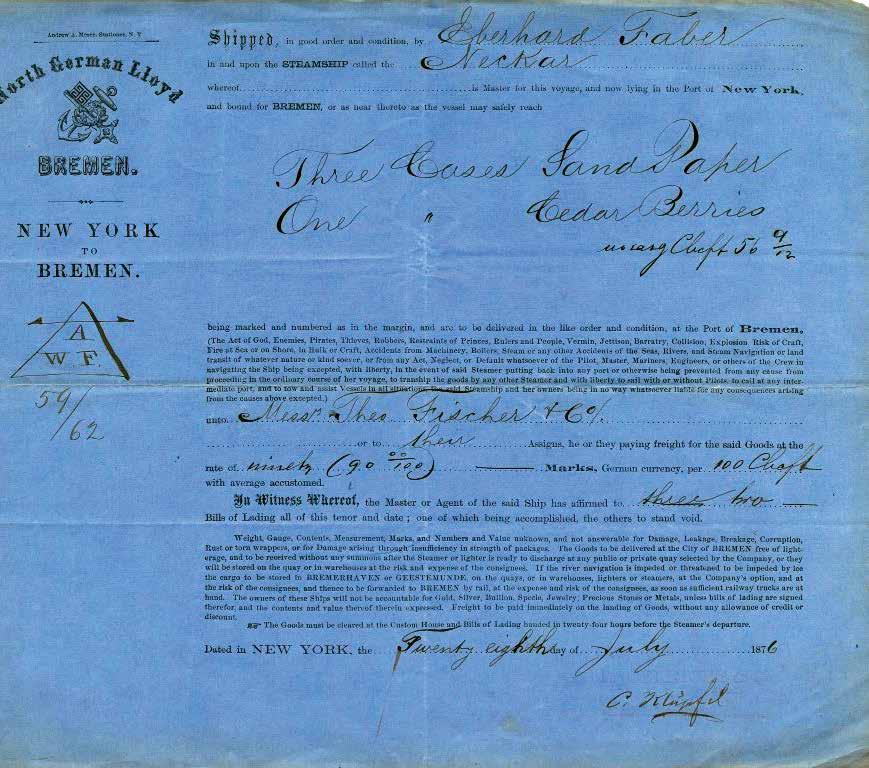 Andrew A. Meser, Stationer, N. Y.
North German Lloyd
BREMEN.
NEW YORK
TO
BREMEN.
A
W F.
59/62
Shipped, in good order and condition, by Eberhard Faber
in and upon the STEAMSHIP called the Neckar
whereof is Master for this voyage, and now lying in the Port of New York,
and bound for BREMEN, or as near thereto as the vessel may safely reach
Three Cases Sand Paper
One " Cedar Berries
Cbcft 56 9/12
being marked and numbered as in the margin, and are to be delivered in the like order and condition, at the Port of Bremen,
(The Act of God, Enemies, Pirates, Thieves, Robbers, Restraints of Princes, Rulers and People, Vermin, Jettison, Barratry, Collision, Explosion Risk of Craft,
Fire at Sea or on Shore, in Hulk or Craft, Accidents from Machinery, Boilers, Steam or any other Accidents of the Seas, Rivers, and Steam Navigation or land
transit of whatever nature or kind soever, or from any Act, Neglect, or Default whatsoever of the Pilot, Master, Mariners, Engineers, or others of the Crew in
navigating the Ship being excepted, with liberty, in the event of said Steamer putting back into any port or otherwise being prevented from any cause from
proceeding in the ordinary course of her voyage, to tranship the goods by any other Steamer and with liberty to sail with or without Pilots, to call at any inter-
mediate port, and to tow and assist Vessels in all situations, the said Steamship and her owners being in no way whatsoever liable for any consequences arising
from the causes above excepted.)
unto Messrs Theo Fischer & Co/.
or to their Assigns, he or they paying freight for the said Goods at the
rate of ninety (90 00/100) Marks, German currency, per 100 Cbcft
with average accustomed.
In Witness Whereof, the Master or Agent of the said Ship has affirmed to three two
Bills of Lading all of this tenor and date; one of which being accomplished, the others to stand void.
Weight, Gauge, Contents, Measurement, Marks, and Numbers and Value unknown, and not answerable for Damage, Leakage, Breakage, Corruption,
Rust or torn wrappers, or for Damage arising through insufficiency in strength of packages. The Goods to be delivered at the City of BREMEN free of light-
erage, and to be received without any summons after the Steamer or lighter is ready to discharge at any public or private quay selected by the Company, or they
will be stored on the quay or in warehouses at the risk and expense of the consignees. If the river navigation is impeded or threatened to be impeded by ice
the cargo to be stored in BREMERHAVEN or GEESTEMUNDE, on the quays, or in warehouses, lighters or steamers, at the Company's option, and at
the risk of the consignees, and thence to be forwarded to BREMEN by rail, at the expense and risk of the consignees, as soon as sufficient railway trucks are at
hand. The owners of these Ships will not be accountable for Gold, Silver, Bullion, Specie, Jewelry, Precious Stones or Metals, unless bills of lading are signed
therefor, and the contents and value thereof therein expressed. Freight to be paid immediately on the landing of Goods, without any allowance of credit or
discount.
☞ The Goods must be cleared at the Custom House and Bills of Lading handed in twenty-four hours before the Steamer's departure.
Dated in NEW YORK, the Twenty eighth day of July 1876
C. Klüpfel